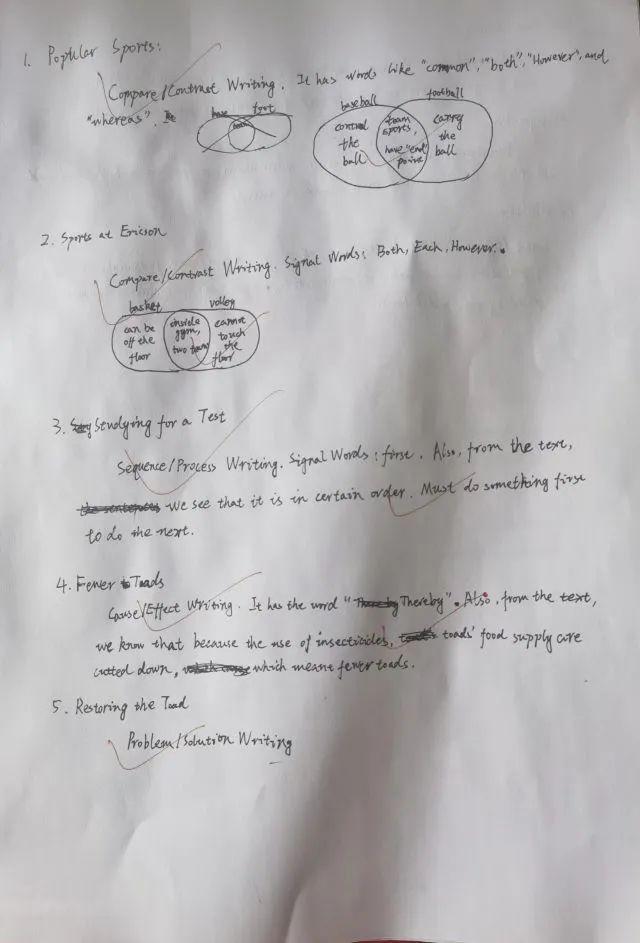 1. Popular Sports:
Compare/Contrast Writing. It has words like "common", "both", "However", and
"whereas".
base foot
baseball football
control the ball
team sports, have "end" point
carry the ball
2. Sports at Ericson
Compare/Contrast Writing. Signal Words: Both, Each, However.
basket volley
can be off the floor
inside gym, two team
cannot touch the floor
3. Studying for a Test
Sequence/Process Writing. Signal Words: first. Also, from the text,
the sentences we see that it is in certain order. Must do something first
to do the next.
4. Fewer Toads
Cause/Effect Writing. It has the word "Thereby". Also, from the text,
we know that because the use of insecticides, toads' food supply are
cutted down, which meant fewer toads.
5. Restoring the Toad
Problem/Solution Writing